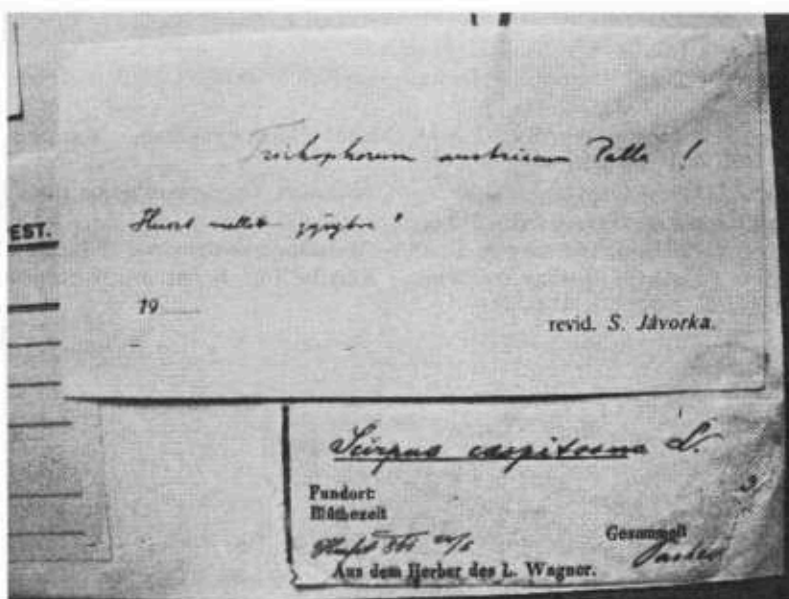 Trichophorum austriacum Palla !
EST.
Hust mellett gyűjtve !
19
revid. S. Jávorka.
Scirpus caespitosus L.
Fundort:
Blüthezeit
Gesammelt
Aus dem Herbar des L. Wagner.